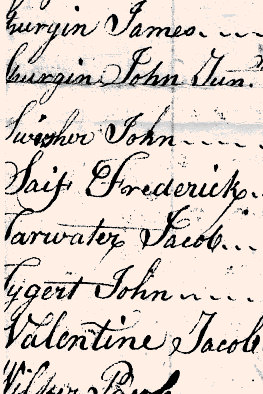 James
John Jun.
Swisher John
Saif Frederick
Tarwater Jacob
Tygert John
Valentine Jacob